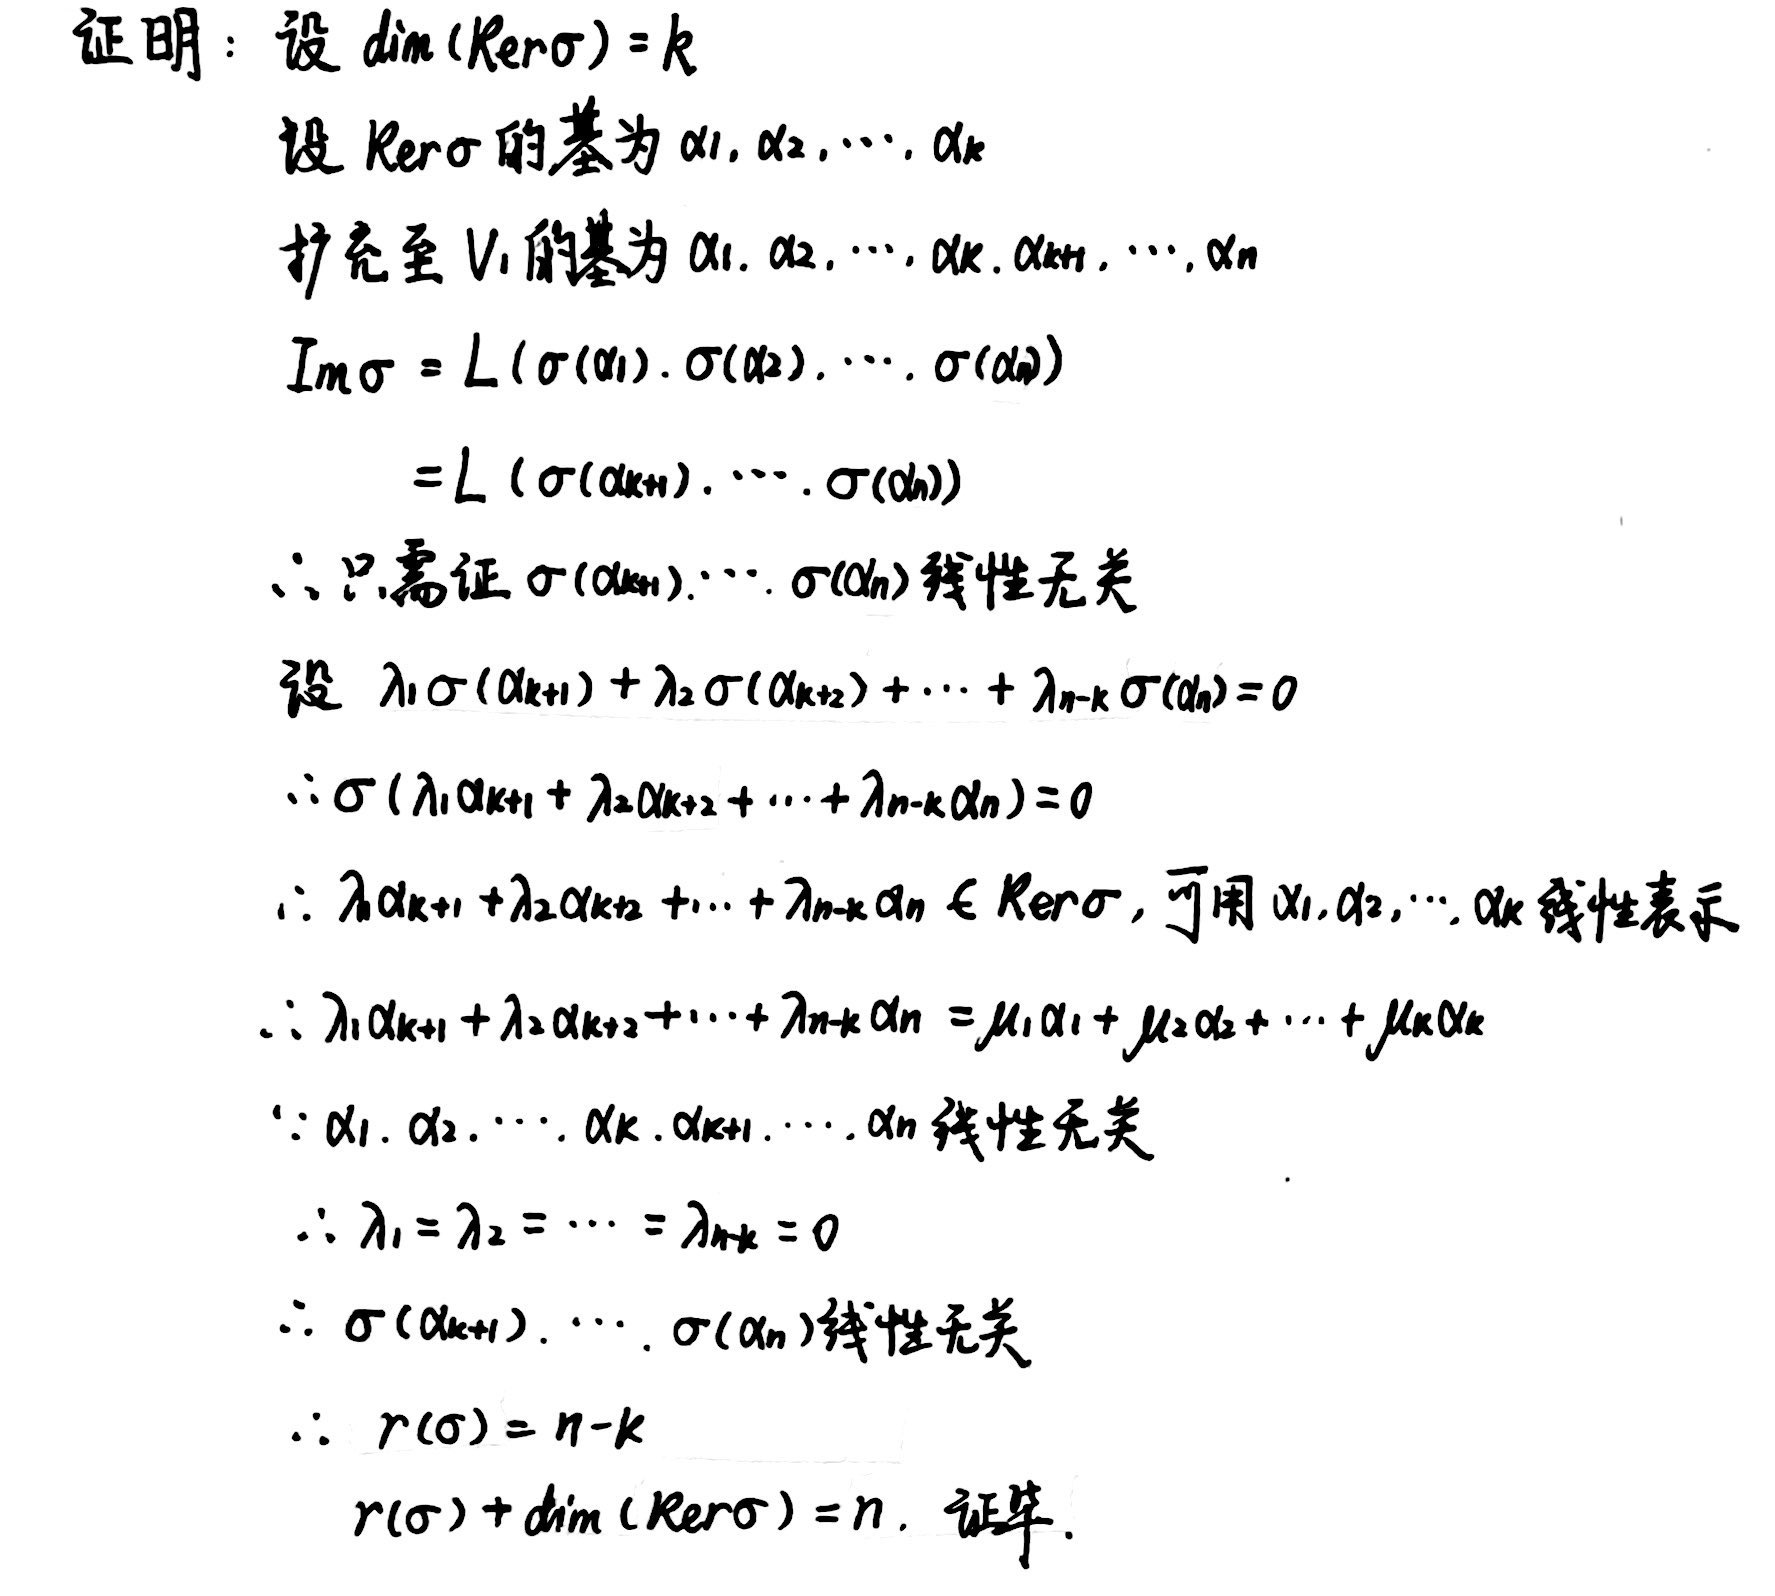 证明：设 dim(Kerσ)=k
设 Kerσ的基为 α1, α2, ⋯, αk
扩充至 V1的基为 α1. α2. ⋯. αk. αk+1. ⋯, αn
Imσ = L(σ(α1). σ(α2). ⋯. σ(αn))
=L (σ(αk+1). ⋯. σ(αn))
∴只需证 σ(αk+1). ⋯. σ(αn) 线性无关
设 λ1σ(αk+1) + λ2σ(αk+2) + ⋯ + λn-kσ(αn)=0
∴σ(λ1αk+1 + λ2αk+2 + ⋯ + λn-kαn)=0
∴ λ1αk+1 + λ2αk+2 + ⋯ + λn-kαn ∈ Kerσ, 可用 α1, α2, ⋯. αk 线性表示
∴ λ1αk+1 + λ2αk+2 + ⋯ + λn-kαn = μ1α1 + μ2α2 + ⋯ + μkαk
∵ α1. α2. ⋯. αk. αk+1. ⋯. αn 线性无关
∴ λ1 = λ2 = ⋯ = λn-k = 0
∴ σ(αk+1). ⋯. σ(αn)线性无关
∴ r(σ) = n-k
r(σ) + dim(Kerσ) = n. 证毕.